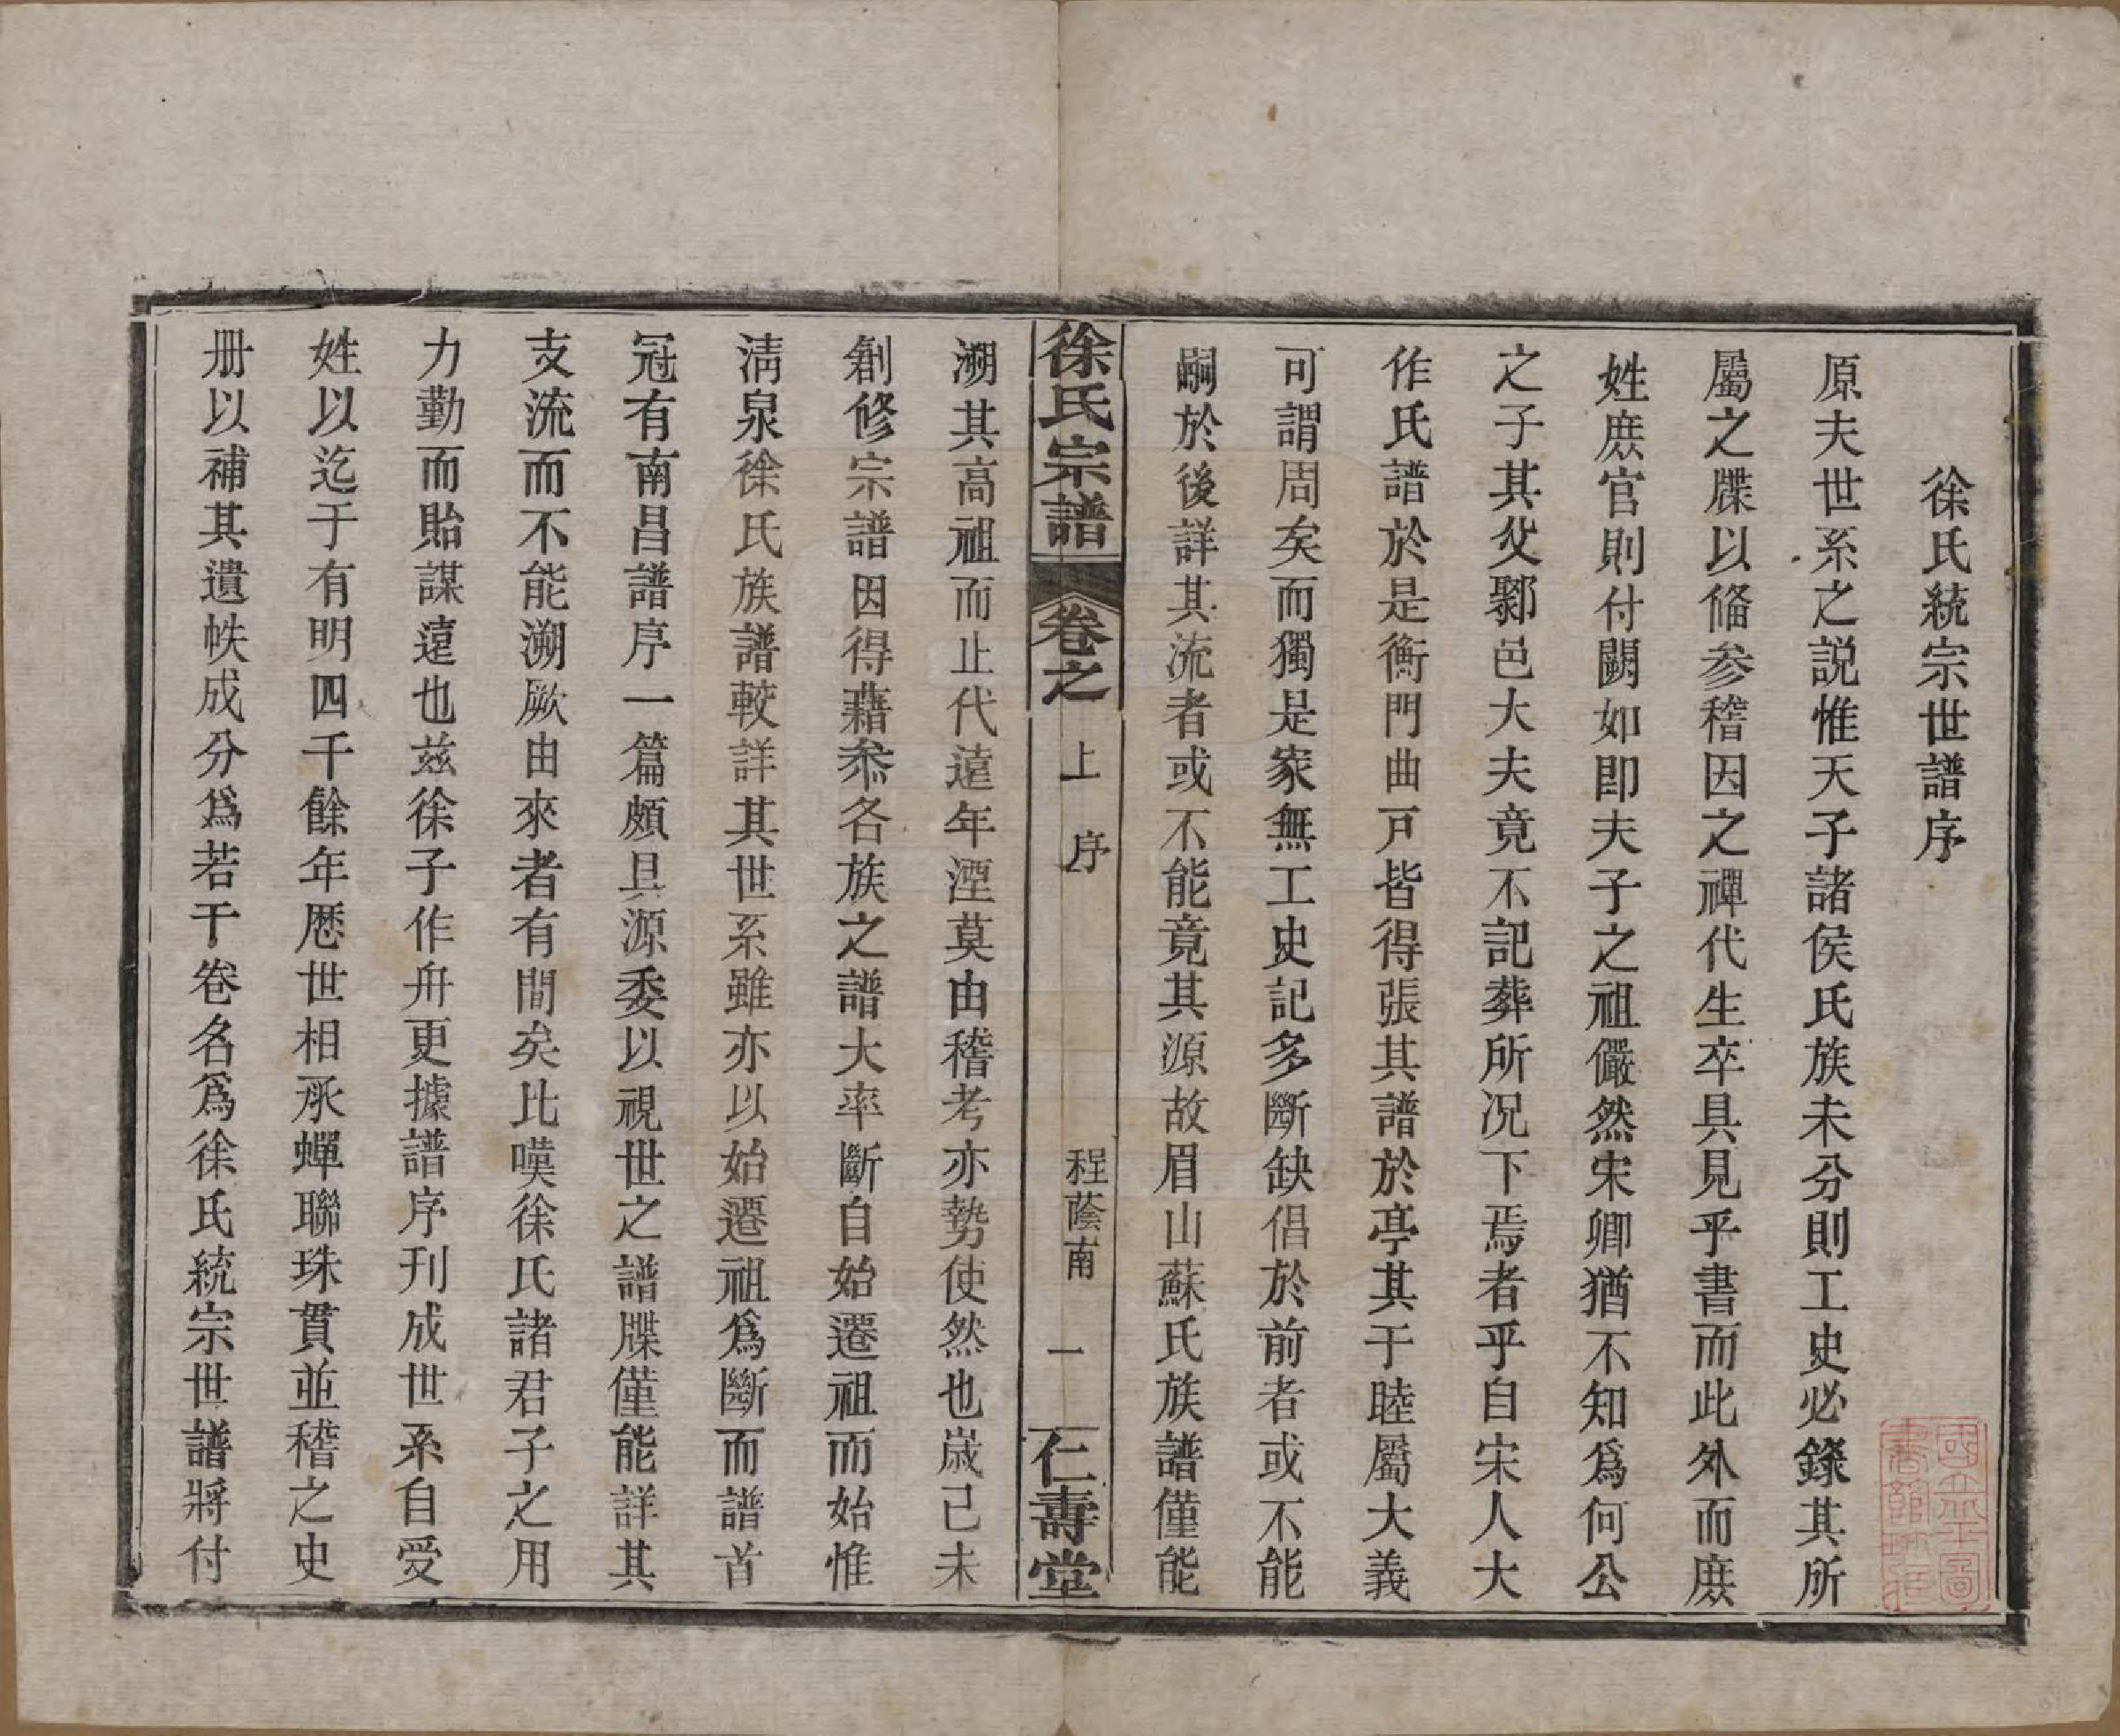 徐氏統宗世譜序
原夫世系之説惟天子諸侯氏族未分則工史必錄其所
屬之牒以俻参稽因之禪代生卒具見乎書而此外而庶
姓庶官則付闕如即夫子之祖儼然宋卿猶不知爲何公
之子其父鄹邑大夫竟不記葬所况下焉者乎自宋人大
作氏譜於是衡門曲戸皆得張其譜於亭其于睦屬大義
可謂周矣而獨是家無工史記多斷缺倡於前者或不能
嗣於後詳其流者或不能竟其源故眉山蘇氏族譜僅能
徐氏宗譜 卷之 上 序 程蔭南 一 仁壽堂
溯其高祖而止代遠年湮莫由稽考亦勢使然也歲己未
創修宗譜因得藉叅各族之譜大率斷自始遷祖而始惟
淸泉徐氏族譜較詳其世系雖亦以始遷祖爲斷而譜首
冠有南昌譜序一篇頗具源委以視世之譜牒僅能詳其
支流而不能溯厥由來者有間矣比嘆徐氏諸君子之用
力勤而貽謀遠也茲徐子作舟更據譜序刊成世系自受
姓以迄于有明四千餘年歷世相承蟬聯珠貫並稽之史
册以補其遺帙成分爲若干卷名爲徐氏統宗世譜將付